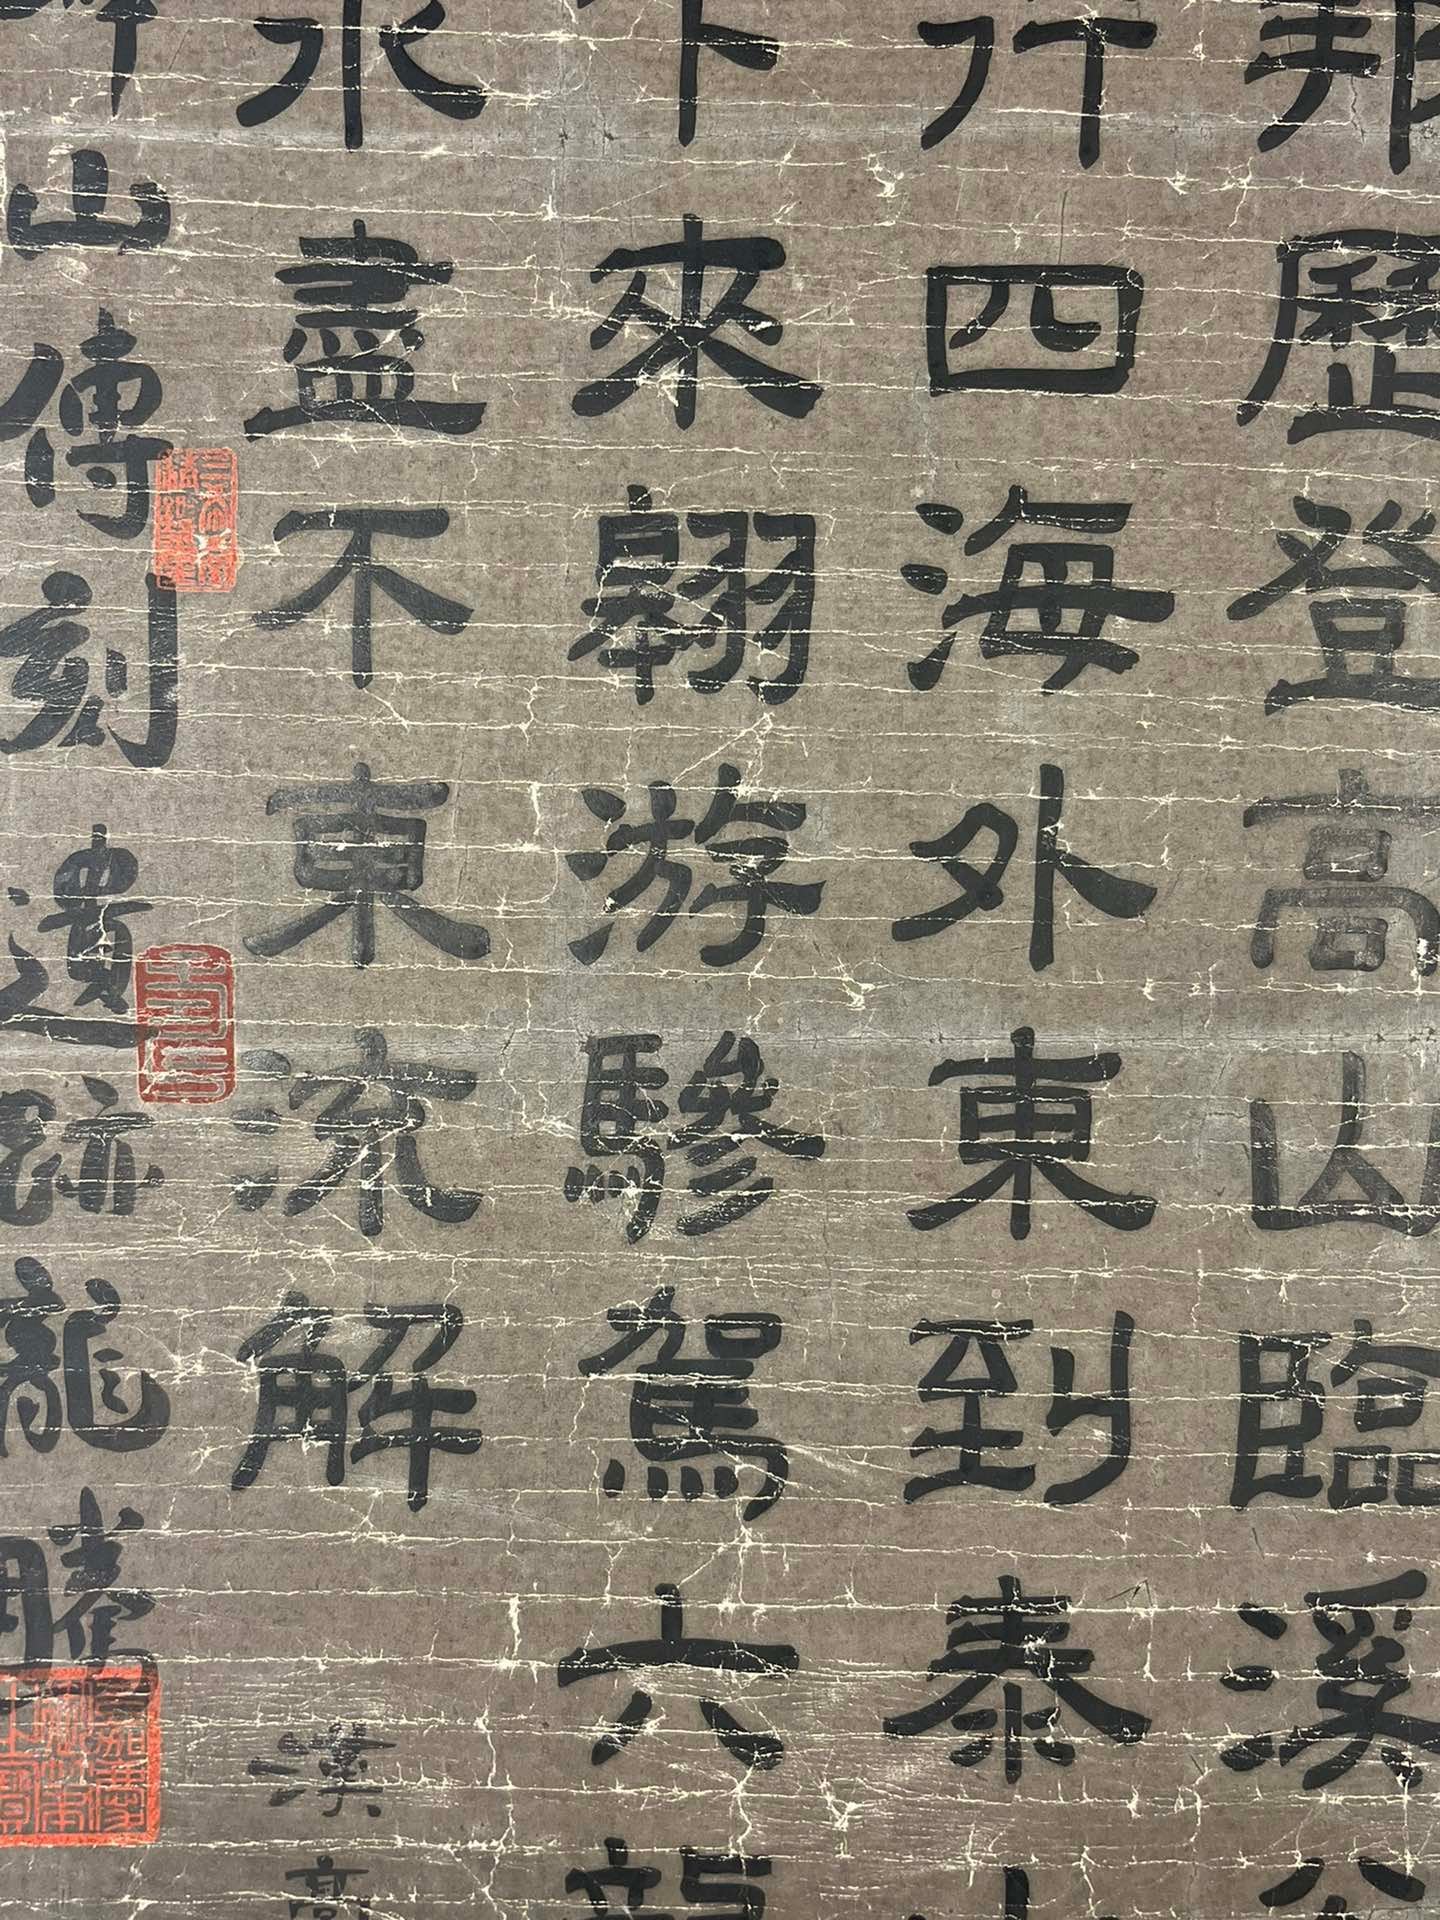 邦歷登高山臨溪谷
行四海外東到泰山
下來翱游驂駕六龍
水盡不東流解
漢高
山傳刻遺跡龍騰